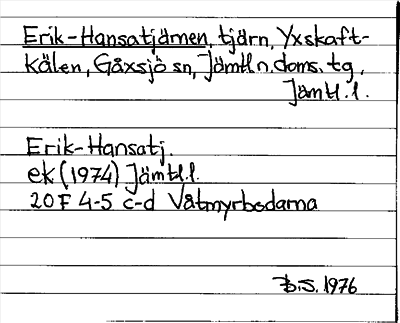 Erik-Hansatjärnen, tjärn, Yxskaft-
kälen, Gåxsjö sn, Jämtl n. doms. tg,
Jämtl. l.
Erik-Hansatj.
ek (1974) Jämtl.l.
20F 4-5 c-d Våtmyrbodarna
B.S. 1976